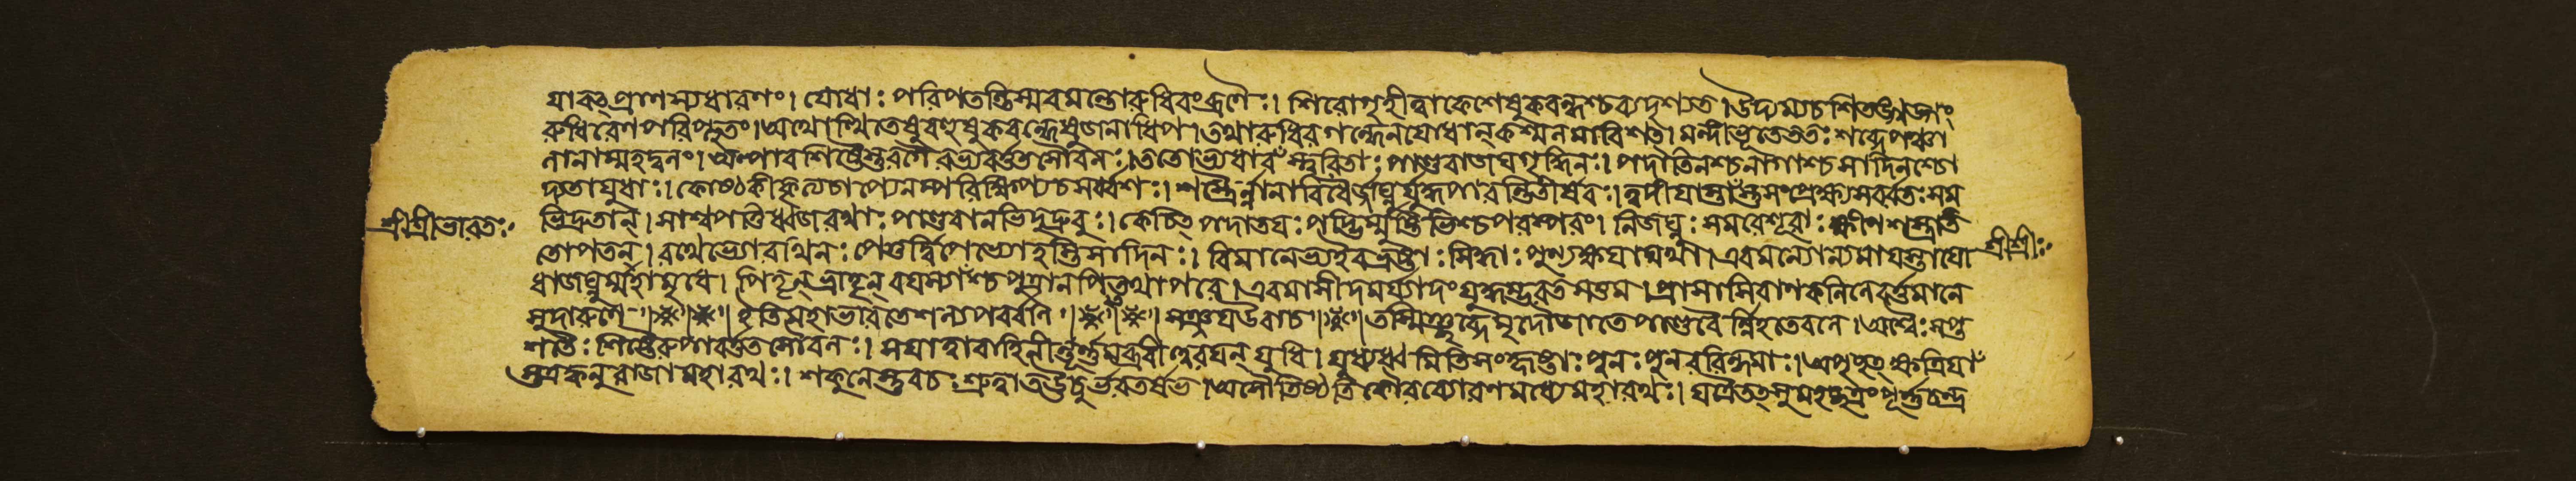 যাবঞ্চপ্রাণস্যধারণং। যোধাঃ পরিপতন্তিস্মবমন্তোরুধিবংব্রণৈঃ। শিরোগৃহীত্বাকেশেষুকবন্ধশ্চব্যদৃশ্যত। উদ্যম্যচশিতংখড়্গং
রুধিরেণপরিপ্লুতং। অথোত্থিতেষুবহুষুকবন্ধেষুজনাধিপ। তথারুধিরগন্ধেনযোধান্কশ্মলমাবিশৎ। মন্দীভূতেততঃ শব্দেপাণ্ডবা
নানাম্মহদ্বলং। অল্পাবশিষ্টৈস্তুরগৈরভ্যবর্ত্ততসৌবলঃ। ততোভ্যধাবঁস্ত্বরিতাঃ পাণ্ডবাজযগৃদ্ধিনঃ। পদাতিনশ্চনাগাশ্চসাদিনশ্চো
দ্যতাযুধাঃ। কোষ্ঠকীকৃত্যচাপ্যেনম্পরিক্ষিপ্যচসর্ব্বশঃ। শস্ত্রৈর্ন্নানাবিধৈর্জঘ্নুর্যুদ্ধপারন্তিতীর্ষবঃ। ত্বদীযাস্তাঁস্তুসংপ্রেক্ষ্যসর্ব্বতঃ সম
ভিদ্রুতান্। সাশ্বপত্তিধ্বজরথাঃ পাণ্ডবানভিদুদ্রুবুঃ। কেচিৎ পদাতযঃ পদ্ভিম্মুষ্টিভিশ্চপরস্পরং। নিজঘ্নুঃ সমরেশূরাঃ ক্ষীণশস্ত্রাস্ত
শ্রীশ্রীভারতঃ
তোপতন্। রথেভ্যোরথিনঃ পেতুর্দ্বিপেভ্যোহস্তিসাদিনঃ। বিমানেভ্যইবভ্রষ্টাঃ সিদ্ধাঃ পুণ্যক্ষযাদ্যথা। এবমন্যোন্যমাযস্তাযো
শ্রীশ্রীঃ
ধাজঘ্নুর্ম্মহামৃধে। পিতৄন্ভ্রাতৄন্ বযস্যাঁশ্চপুত্রানপিতথাপরে। এবমাসীদমর্য্যাদংযুদ্ধম্ভরতসত্তম। প্রাসাসিবাণকলিলেবর্ত্তমানে
সুদারুণে॥ ইতিমহাভারতেশল্যপর্ব্বণি॥ সঞ্জযউবাচ॥ তস্মিঞ্ছব্দেমৃদৌজাতেপাণ্ডবৈর্ন্নিহতেবলে। অশ্বৈঃ সপ্ত
শতৈঃ শিষ্টৈরুপাবর্ত্ততসৌবলঃ। সযাত্বাবাহিনীন্তূর্ণ্ণমব্রবীত্ত্বরযন্ যুধি। যুধ্যধ্বমিতিসংহৃষ্টাঃ পুনঃ পুনররিন্দমাঃ। অপৃচ্ছৎ ক্ষত্রিযাঁ
স্তত্রক্বনুরাজামহারথঃ। শকুনেস্তুবচঃ শ্রুত্বাতঊচুর্ভরতর্ষভ। অসৌতিষ্ঠতিকৌরব্যোরণমধ্যেমহারথঃ। যত্রৈতৎসুমহচ্ছত্রংপূর্ণ্ণচন্দ্র